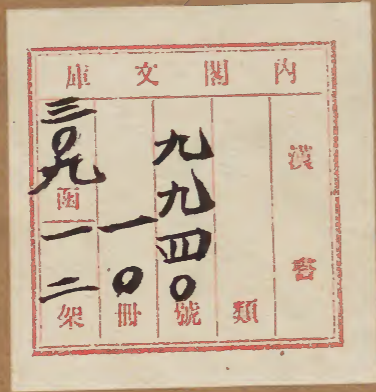 内閣文庫
漢書
類
九九四〇號
一〇冊
三〇九函
一二架